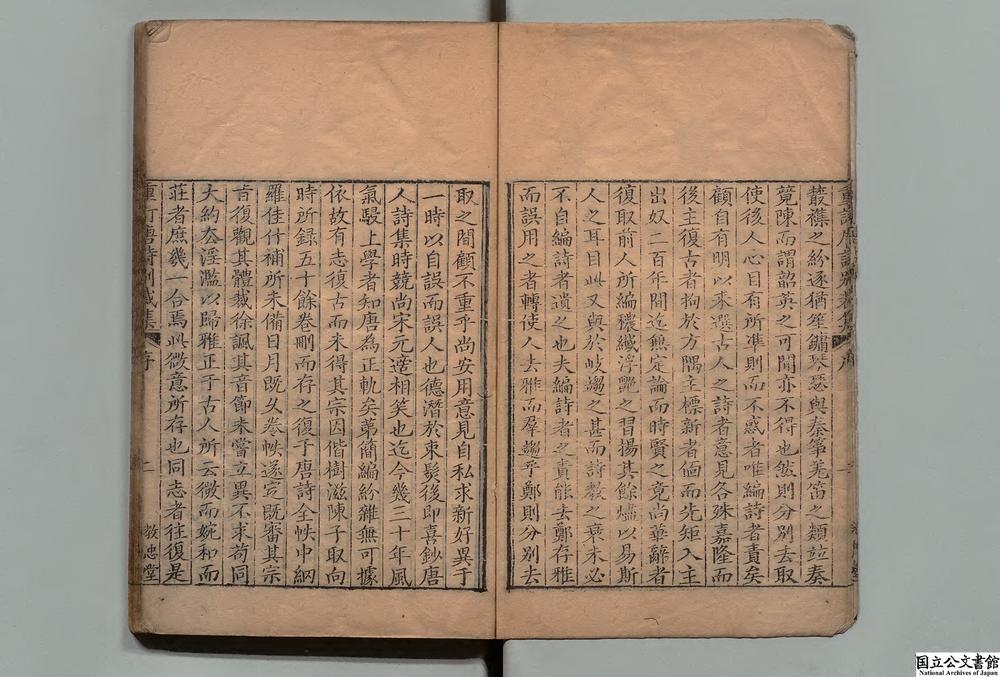 叢襍之紛逐猶笙鏞琴瑟與秦箏羌笛之類竝奏
競陳而謂韶英之可聞亦不得也然則分別去取
使後人心目有所準則而不惑者唯編詩者責矣
顧自有明以來選古人之詩者意見各殊嘉隆而
後主復古者拘於方隅主標新者偭而先矩入主
出奴二百年間迄無定論而時賢之竟尚華辭者
復取前人所編穠纎浮艷之習揚其餘燼以易斯
人之耳目此又與於岐趨之甚而詩教之衰未必
不自編詩者遺之也夫編詩者之責能去鄭存雅
而誤用之者轉使人去雅而羣趨乎鄭則分別去
取之間顧不重乎尚安用意見自私求新好異于
一時以自誤而誤人也德潛於束髮後即喜鈔唐
人詩集時競尚宋元適相笑也迄今幾三十年風
氣駸上學者知唐為正軌矣苐簡編紛雜無可據
依故有志復古而未得其宗因偕樹滋陳子取向
時所録五十餘卷刪而存之復于唐詩全帙中網
羅佳什補所未備日月既久卷帙遂定既審其宗
旨復觀其體裁徐諷其音節未嘗立異不求苟同
大約去淫濫以歸雅正于古人所云微而婉和而
莊者庶幾一合焉此微意所存也同志者往復是
重訂唐詩別裁集
序
二
教忠堂